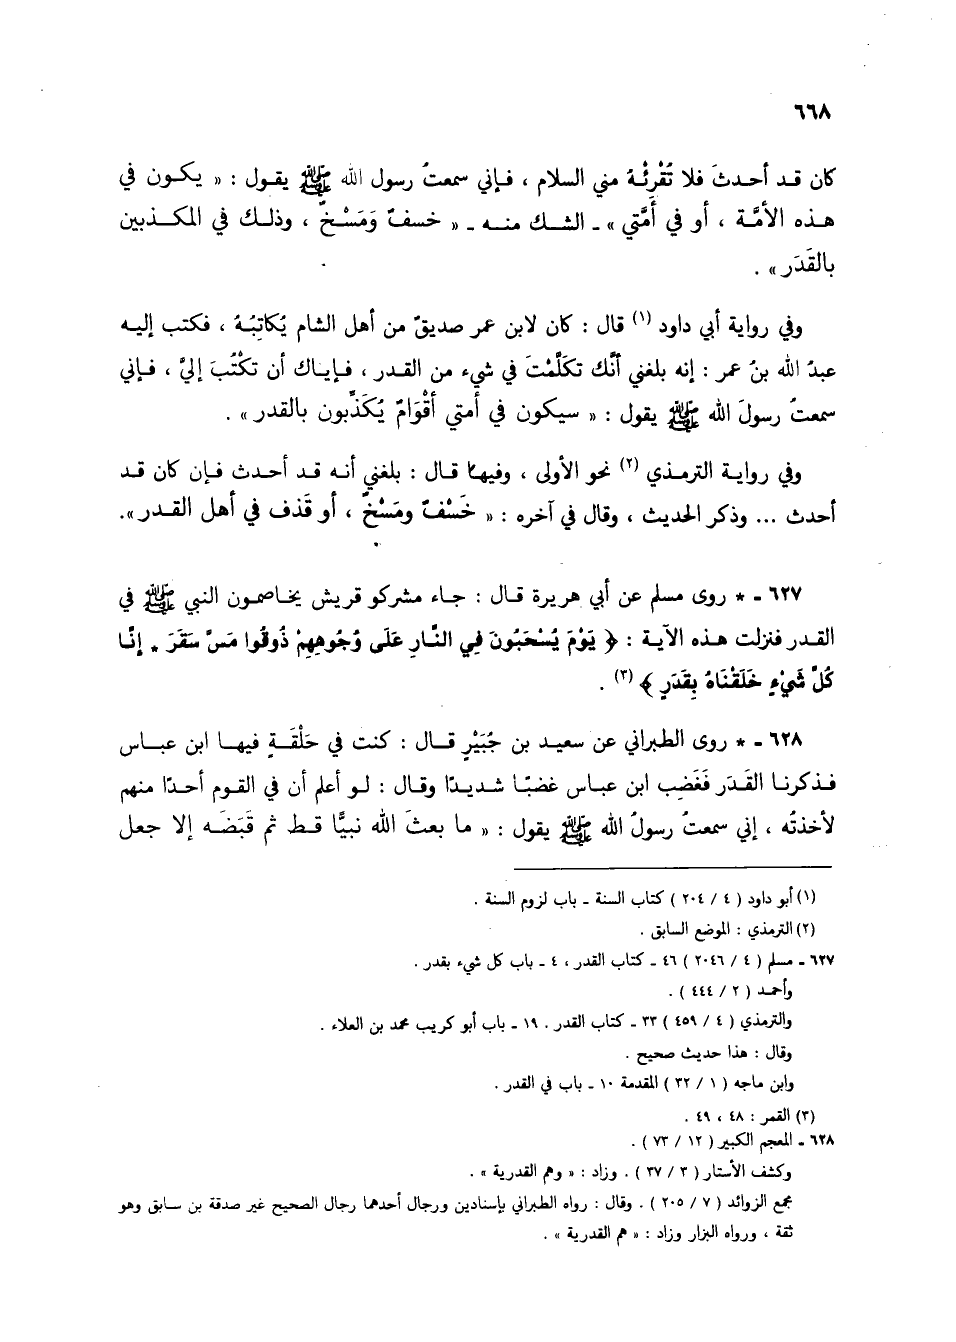 ٦٦٨
كان قد أحدثَ فلا تُقْرِئْهُ مني السلام ، فإني سمعتُ رسول الله ﷺ يقول : « يكون في
هذه الأمَّة ، أو في أُمَّتي » ـ الشك منه ـ « خسفٌ وَمَسْخٌ ، وذلك في المكذبين
بالقَدَر » .
وفي رواية أبي داود (١) قال : كان لابن عمر صديقٌ من أهل الشام يُكاتِبُهُ ، فكتب إليه
عبدُ الله بنُ عمر : إنه بلغني أنَّك تكَلَّمْتَ في شيء من القدر ، فإياك أن تكْتُبَ إليَّ ، فإني
سمعتُ رسولَ الله ﷺ يقول : « سيكون في أمتي أقْوَامٌ يُكَذِّبون بالقدر » .
وفي رواية الترمذي (٢) نحو الأولى ، وفيها قال : بلغني أنه قد أحدث فإن كان قد
أحدث ... وذكر الحديث ، وقال في آخره : « خَسْفٌ ومَسْخٌ ، أو قَذف في أهل القدر » .
٦٢٧ ـ * روى مسلم عن أبي هريرة قال : جاء مشركو قريش يخاصمون النبي ﷺ في
القدر فنزلت هذه الآية : ﴿ يَوْمَ يُسْحَبُونَ فِي النَّارِ عَلَى وُجُوهِهِمْ ذُوقُوا مَسَّ سَقَرَ * إنَّا
كُلَّ شَيْءٍ خَلَقْنَاهُ بِقَدَرٍ ﴾ (٣) .
٦٢٨ ـ * روى الطبراني عن سعيد بن جُبَيْرٍ قال : كنت في حَلْقَةٍ فيها ابن عباس
فذكرنا القَدَر فَغَضِب ابن عباس غضبًا شديدًا وقال : لو أعلم أن في القوم أحدًا منهم
لأخذتُه ، إني سمعتُ رسولُ الله ﷺ يقول : « ما بعثَ الله نبيًّا قط ثم قَبَضَه إلا جعل
(١) أبو داود ( ٤ / ٢٠٤ ) كتاب السنة ـ باب لزوم السنة .
(٢) الترمذي : الموضع السابق .
٦٢٧ ـ مسلم ( ٤ / ٢٠٤٦ ) ٤٦ ـ كتاب القدر ، ٤ ـ باب كل شيء بقدر .
وأحمد ( ٢ / ٤٤٤ ) .
والترمذي ( ٤ / ٤٥٩ ) ٣٣ ـ كتاب القدر . ١٩ ـ باب أبو كريب محمد بن العلاء .
وقال : هذا حديث صحيح .
وابن ماجه ( ١ / ٣٢ ) المقدمة ١٠ ـ باب في القدر .
(٣) القمر : ٤٨ ، ٤٩ .
٦٢٨ ـ المعجم الكبير ( ١٢ / ٧٣ ) .
وكشف الأستار ( ٣ / ٣٧ ) . وزاد : « وهم القدرية » .
مجمع الزوائد ( ٧ / ٢٠٥ ) . وقال : رواه الطبراني بإسنادين ورجال أحدهما رجال الصحيح غير صدقة بن سابق وهو
ثقة ، ورواه البزار وزاد : « هم القدرية » .